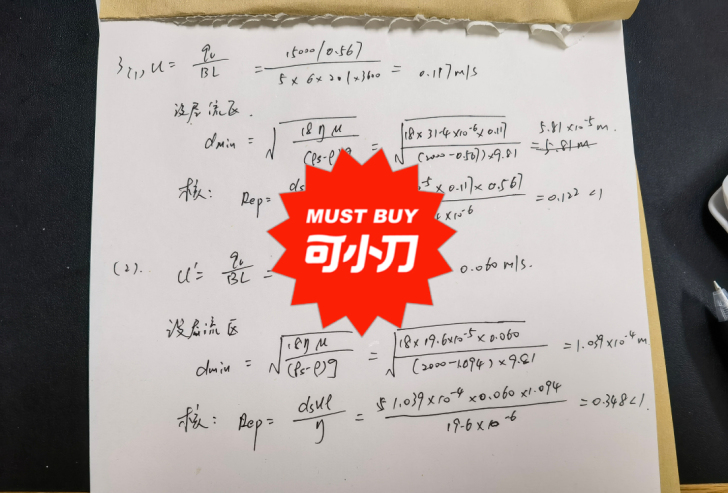 3. (1) u = qv/BL = 15000/0.567 / 5×6×201×3600 = 0.117 m/s
设层流区
dmin = √(18ημ/(ρs-ρ)g) = √(18×31.4×10⁻⁶×0.117/(2000-0.567)×9.81) = 5.81×10⁻⁵ m.
=5.81 m
核: Rep = ds ⁻⁵×0.117×0.567 / ×10⁻⁶ = 0.122<1
MUST BUY
可小刀
(2). u' = qv/BL = 0.060 m/s.
设层流区
dmin = √(18ημ/(ρs-ρ)g) = √(18×19.6×10⁻⁵×0.060/(2000-1.094)×9.81) = 1.039×10⁻⁴ m
核: Rep = dsuρ/η = 1.039×10⁻⁴×0.060×1.094 / 19.6×10⁻⁶ = 0.348<1.